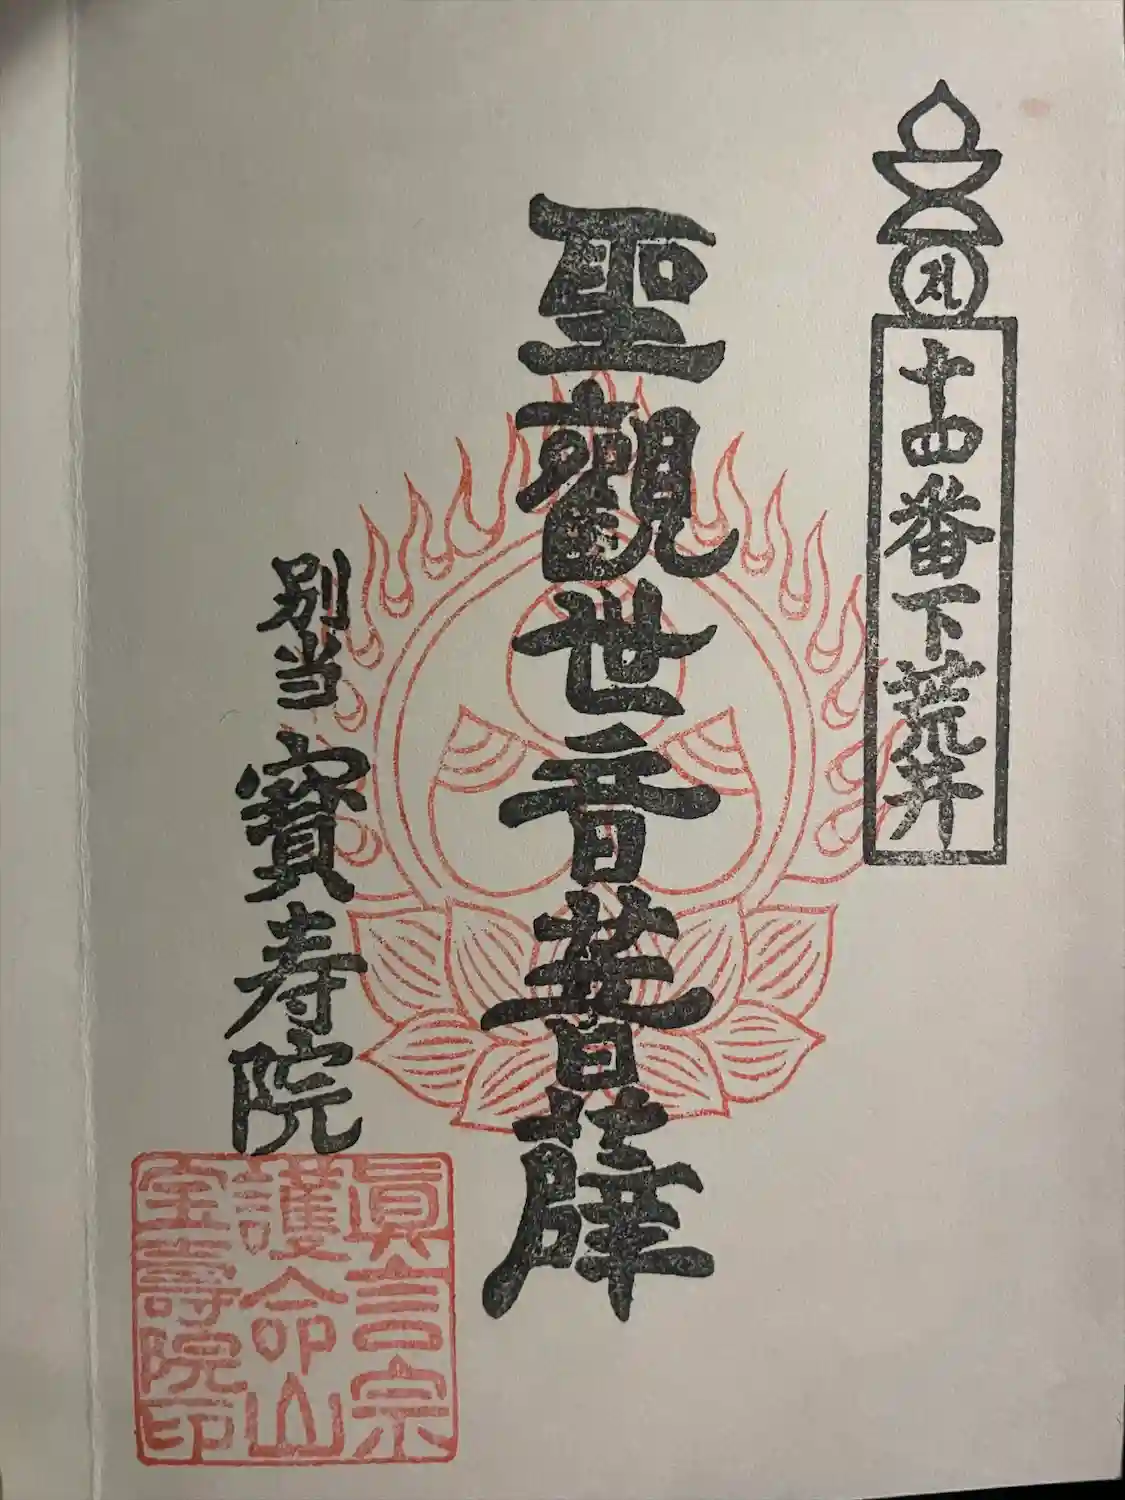 十四番下荒井
聖観世音菩薩
別当 寳寿院
眞言宗
護命山
宝壽院印